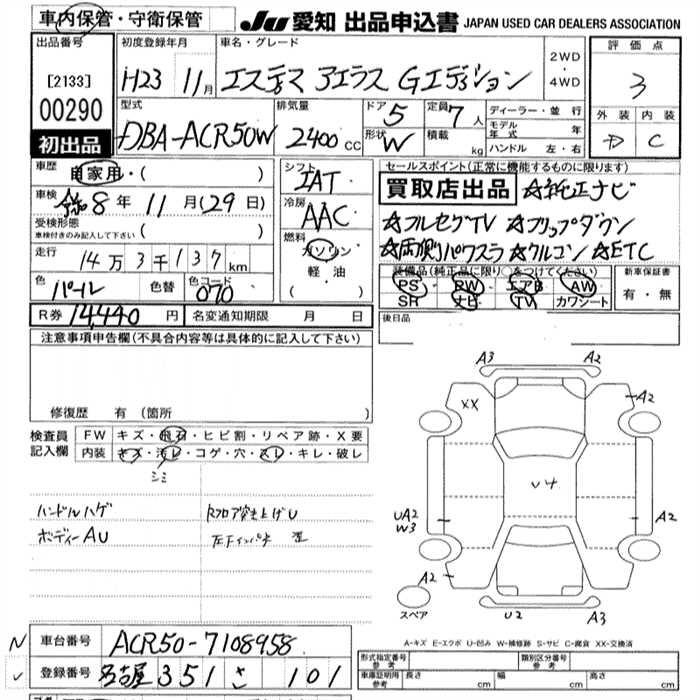 車内保管・守衛保管
JU 愛知 出品申込書 JAPAN USED CAR DEALERS ASSOCIATION
出品番号
[2133]
00290
初出品
初度登録年月
H23 11月
車名・グレード
エスティマ アエラス Gエディション
2WD
4WD
評価点
3
外装 内装
D C
型式
DBA-ACR50W
排気量
2400 CC
ドア 5
形状 W
定員 7人
積載 kg
ディーラー・並行
モデル年式 年
ハンドル 左・右
車歴
自家用・( )
車検
令和8年 11月(29日)
受検形態
車検付きのみ記入して下さい ( )
走行
14万3千137km
色 パール 色替 色コード 070
シフト
IAT
冷房
AAC
燃料
ガソリン
軽油
( )
セールスポイント(正常に機能するものに限ります)
買取店出品 ☆純正ナビ
☆フルセグTV ☆フリップダウン
☆両側パワスラ ☆クルコン ☆ETC
装備品(純正品に限り○をつけてください)
PS PW エアB AW
SR ナビ TV カワシート
新車保証書
有・無
R券 14,440円 名変通知期限 月 日
後日品
注意事項申告欄(不具合内容等は具体的に記入して下さい)
修復歴 有(箇所 )
検査員記入欄
FW キズ・飛石・ヒビ割・リペア跡・X要
内装 キズ・汚レ・コゲ・穴・スレ・キレ・破レ
シミ
ハンドルハゲ
ボディーAU
Rフロア突き上げU
A3 A2
XX
A2
U4
UA2
W3
A2
A2
スペア
U2 A3
A-キズ E-エクボ U-凹み W-補修跡 S-サビ C-腐食 XX-交換済
車台番号 ACR50-7108958
登録番号 名古屋 351 さ 101
形式指定番号参考
類別区分番号参考
車庫証明用参考 長さ cm 幅 cm 高さ cm